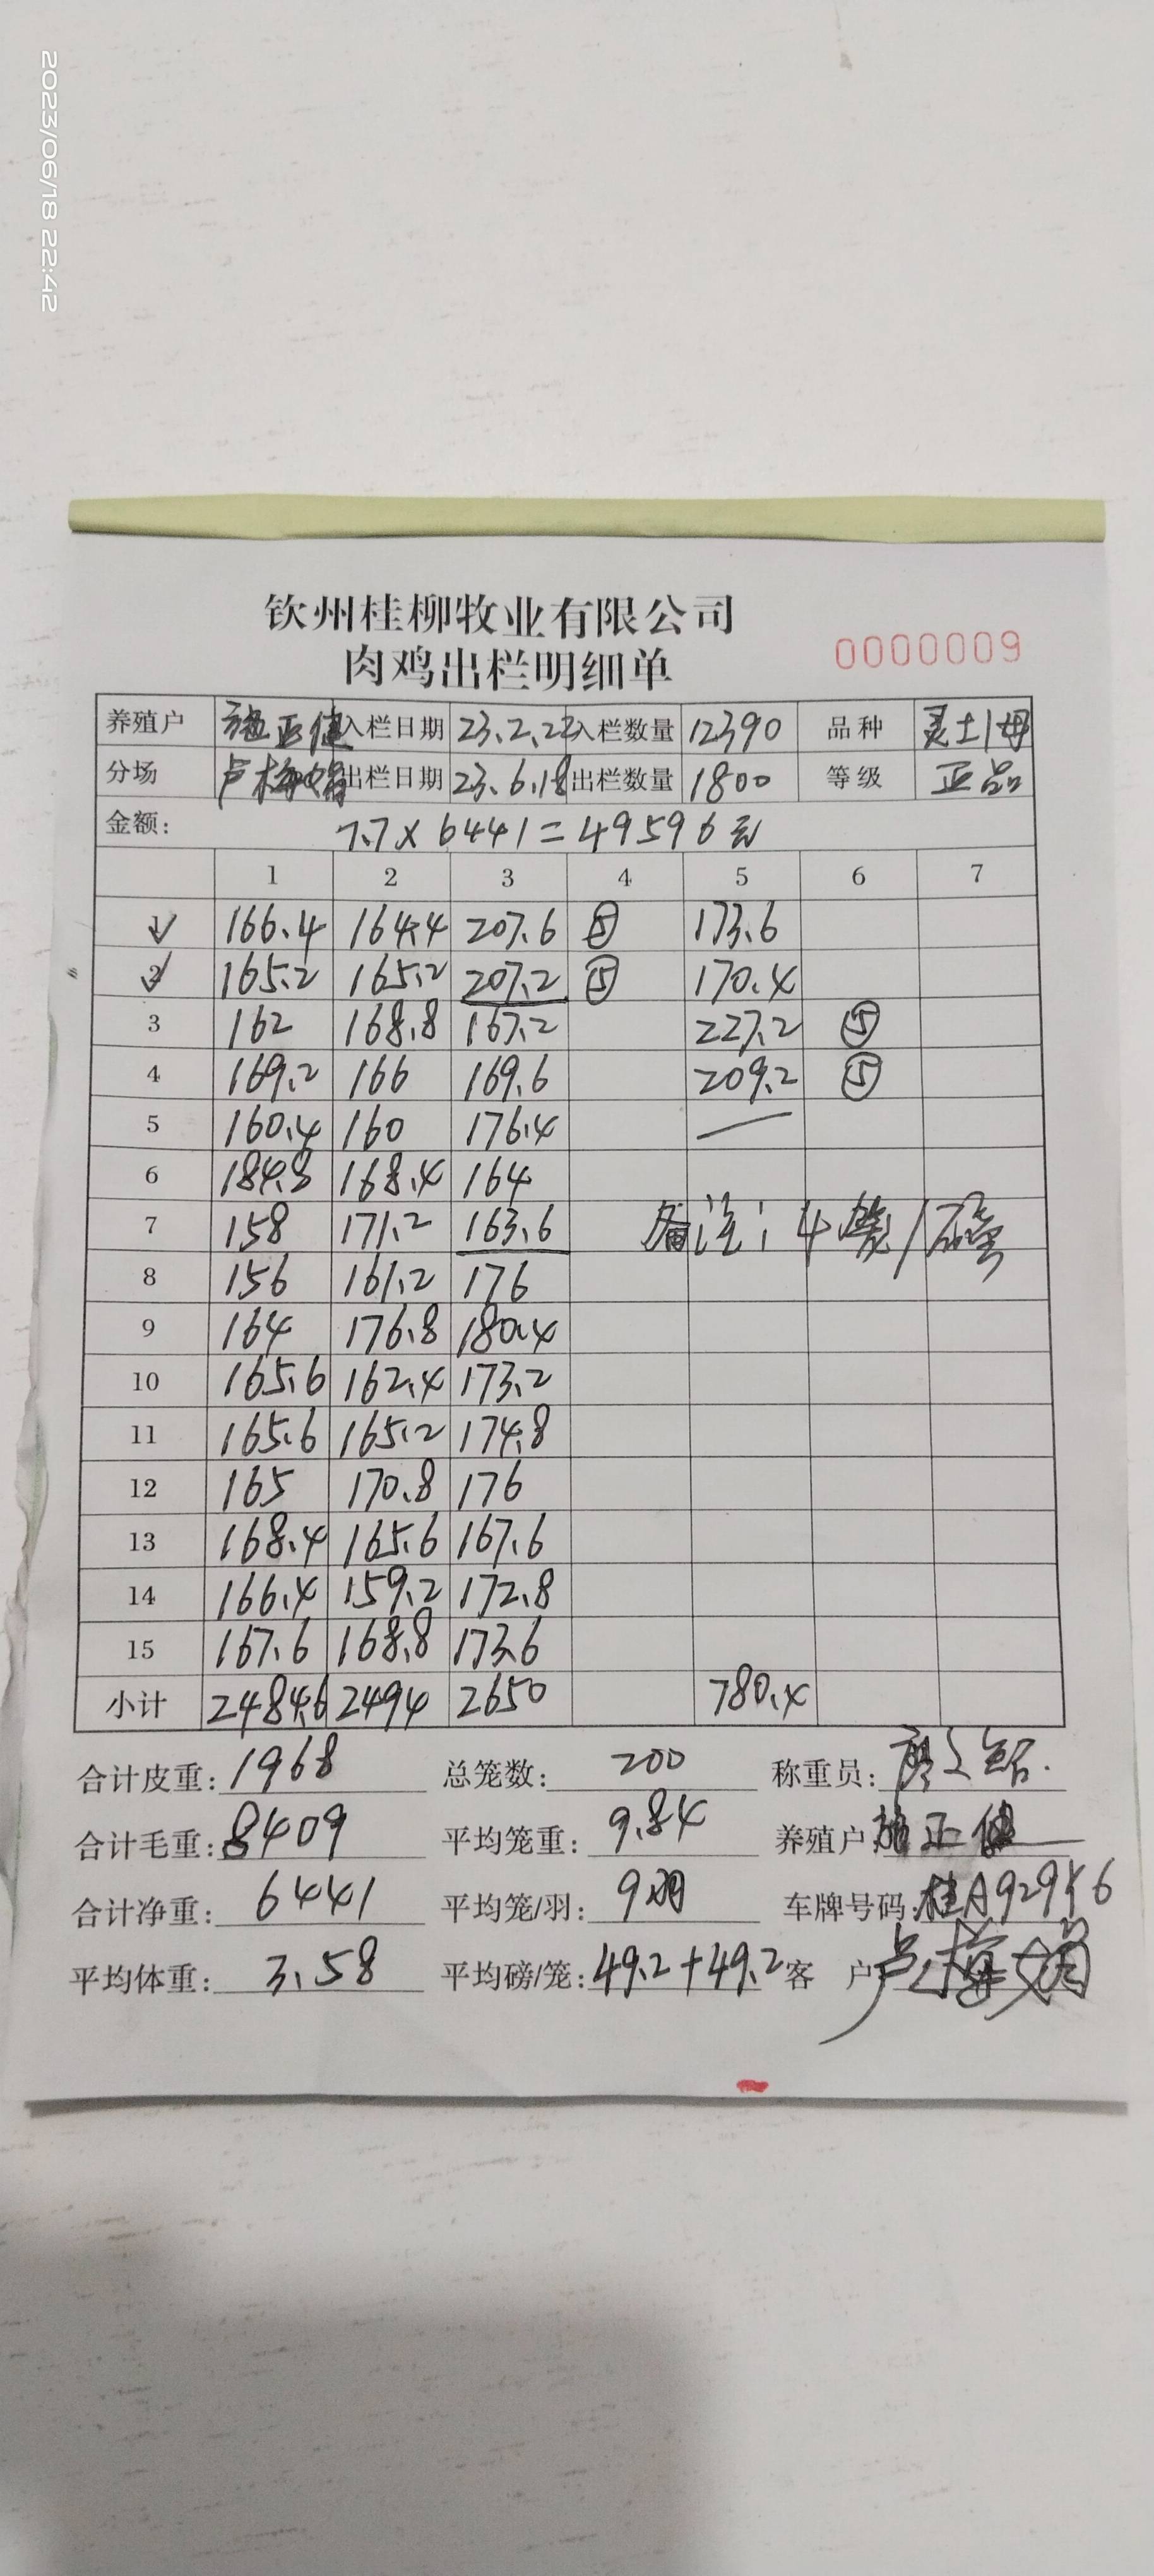 2023/06/18 22:42
钦州桂柳牧业有限公司
肉鸡出栏明细单
0000009
养殖户 施正健 入栏日期 23.2.22 入栏数量 12390 品种 灵土1母
分场 卢梅娟 出栏日期 23.6.18 出栏数量 1800 等级 正品
金额: 7.7×6441=49596元
1 2 3 4 5 6 7
1 166.4 164.4 207.6 ⑤ 173.6
2 165.2 165.2 207.2 ⑤ 170.4
3 162 168.8 167.2 227.2 ⑤
4 169.2 166 169.6 209.2 ⑤
5 160.4 160 176.4
6 184.8 168.4 164
7 158 171.2 163.6 备注:4笼/磅
8 156 161.2 176
9 164 176.8 180.4
10 165.6 162.4 173.2
11 165.6 165.2 174.8
12 165 170.8 176
13 168.4 165.6 167.6
14 166.4 159.2 172.8
15 167.6 168.8 173.6
小计 2484.6 2494 2650 780.4
合计皮重: 1968 总笼数: 200 称重员:
合计毛重: 8409 平均笼重: 9.84 养殖户: 施正健
合计净重: 6441 平均笼/羽: 9羽 车牌号码: 桂A92956
平均体重: 3.58 平均磅/笼: 49.2+49.2 客户: 卢梅娟